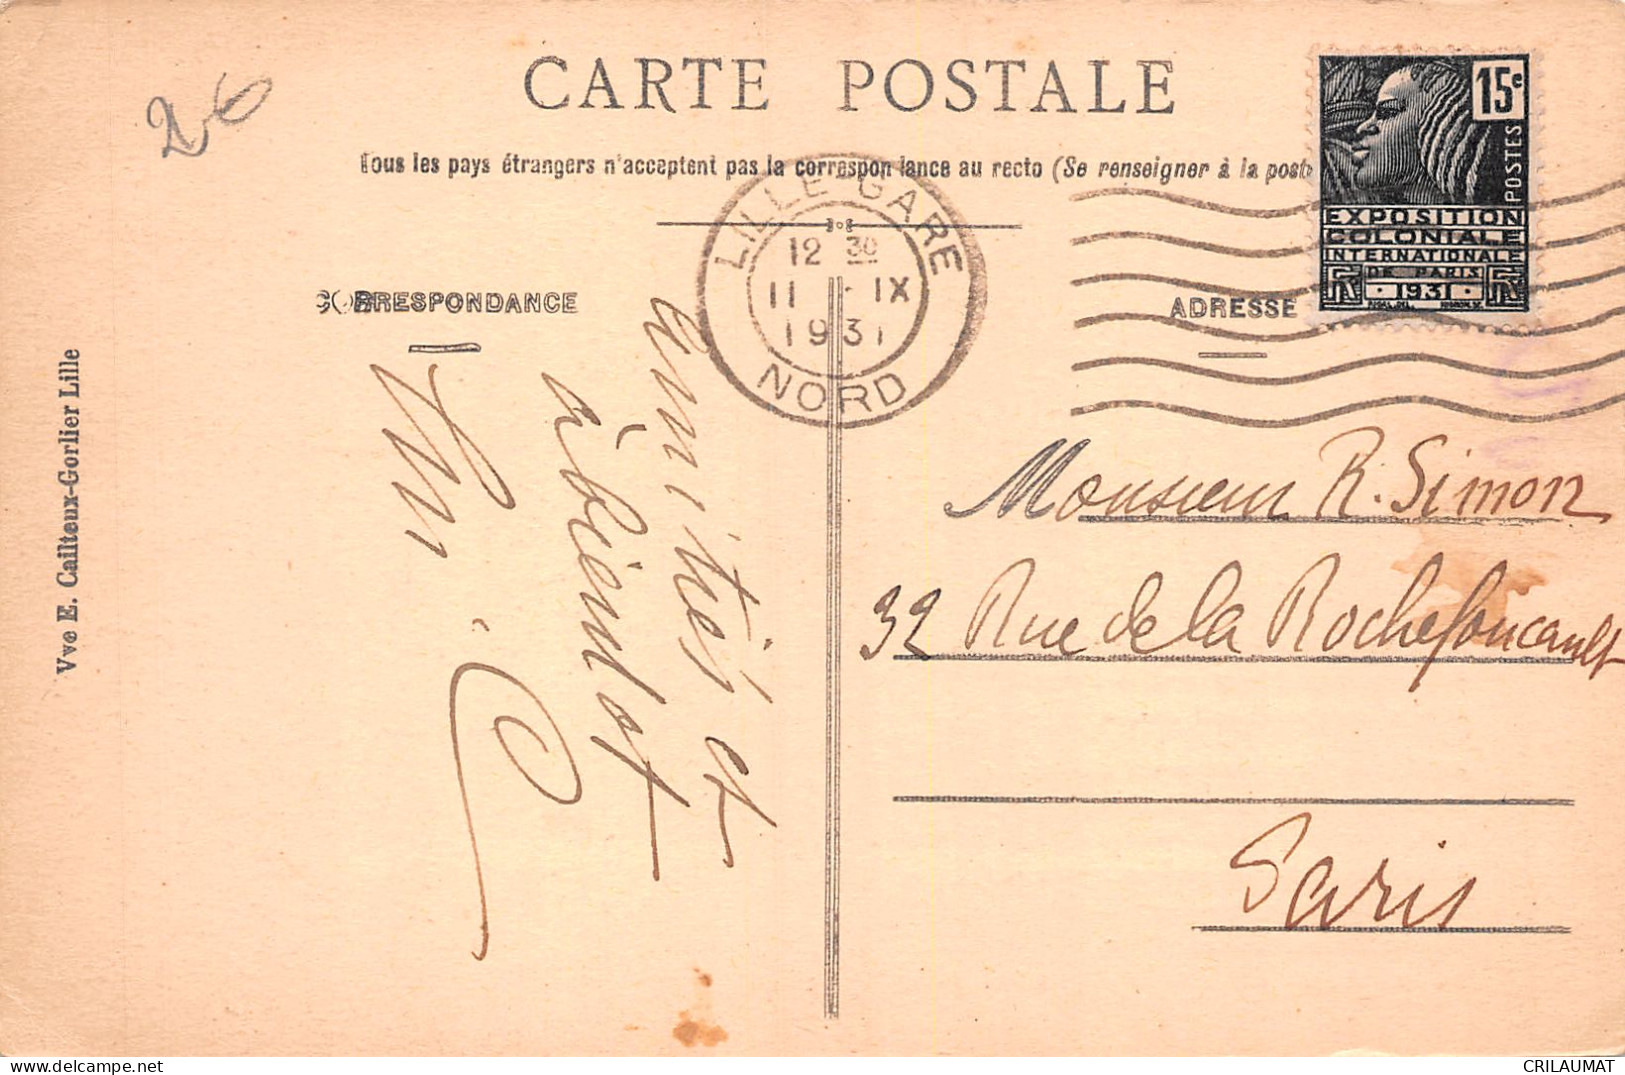 CARTE POSTALE
Tous les pays étrangers n'acceptent pas la correspondance au recto (Se renseigner à la poste
26
15c
POSTES
EXPOSITION
COLONIALE
INTERNATIONALE
DE PARIS
1931
LILLE-GARE
12 30
11 - IX
1931
NORD
CORRESPONDANCE
ADRESSE
amitiés et
à bientôt
Monsieur R. Simon
32 Rue de la Rochefoucault
Paris
Vve E. Cailteux-Gorlier Lille
delcampe.net
CRILAUMAT